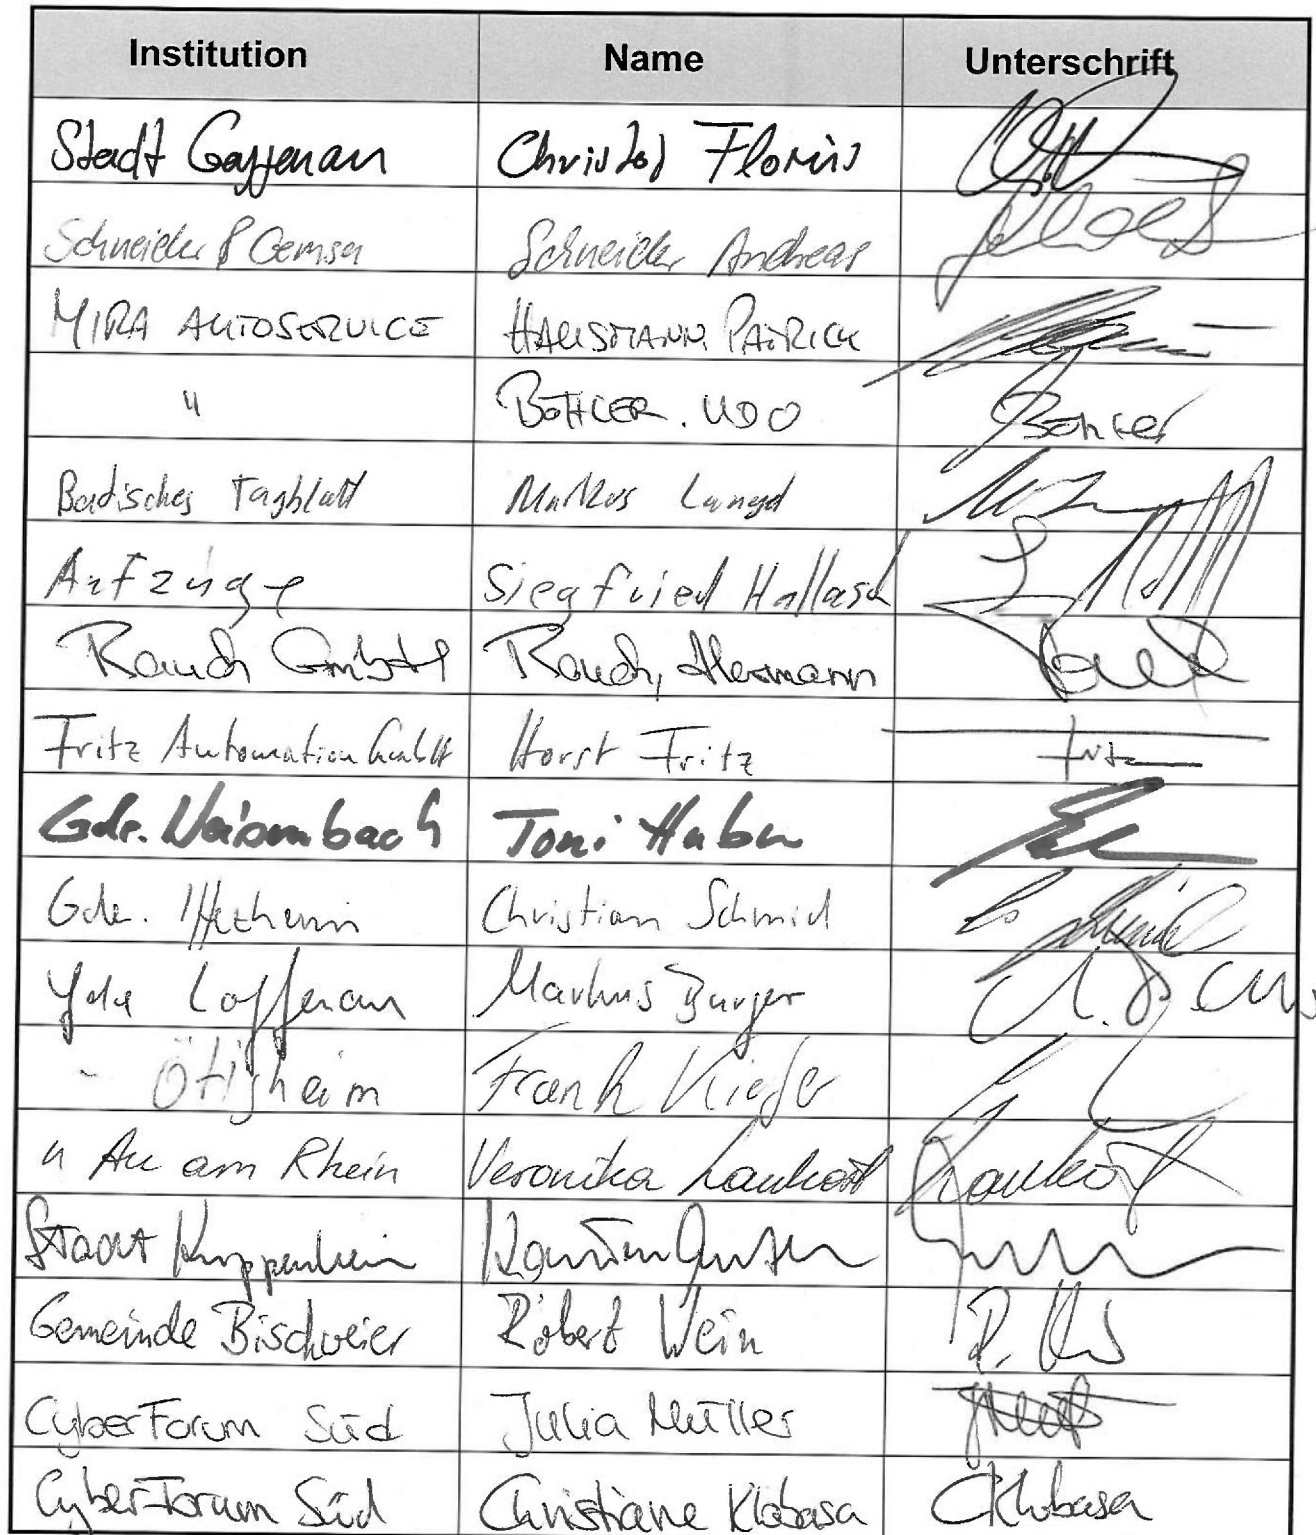 Institution Name Unterschrift
Stadt Gaggenau Christof Florus
Schneider & Gemsa Schneider Andreas
MIRA AUTOSERVICE HAUSMANN, PATRICK
" BÖHLER. UDO Böhler
Badisches Tagblatt Markus Langer
Aufzüge Siegfried Hallasch
Rauch GmbH Rauch, Hermann
Fritz Automation GmbH Horst Fritz Fritz
Gde. Weisenbach Toni Huber
Gde. Iffezheim Christian Schmid
Gde Loffenau Markus Burger
" Ötigheim Frank Kiefer
" Au am Rhein Veronika Laukart Laukart
Stadt Kuppenheim Karsten
Gemeinde Bischweier Robert Wein
CyberForum Süd Julia Müller
CyberForum Süd Christiane Klobasa CKlobasa